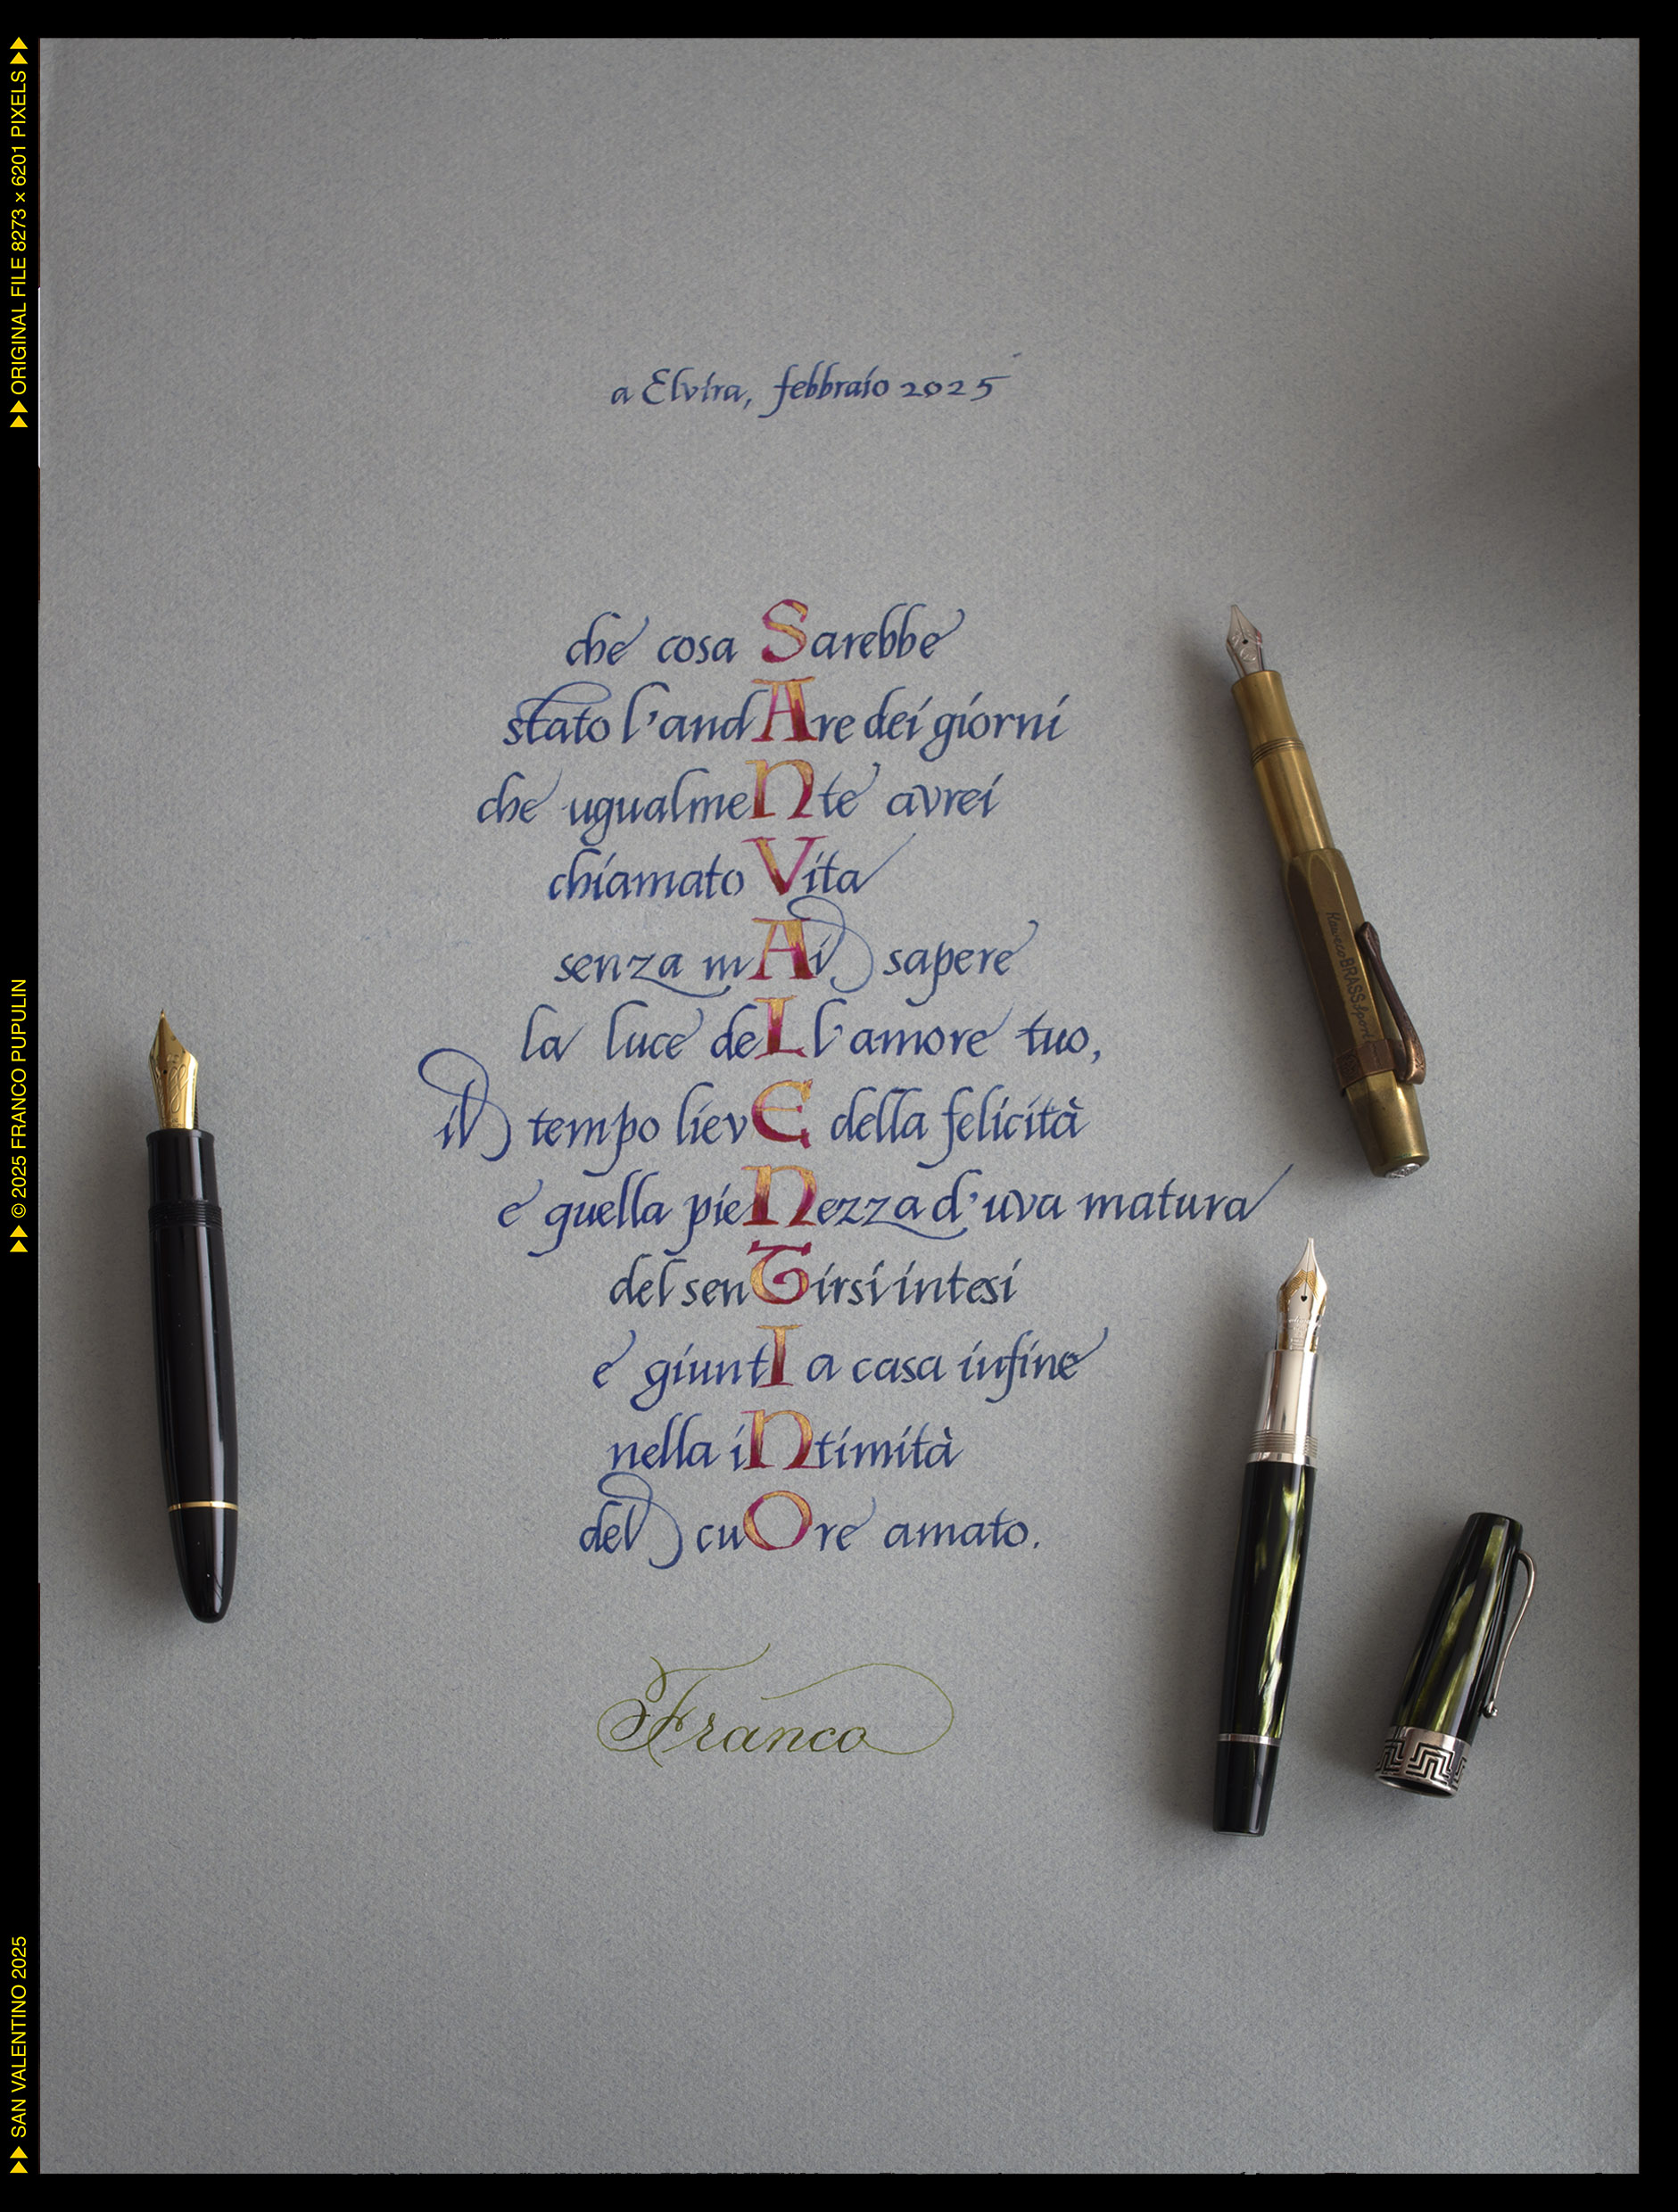 a Elvira, febbraio 2025
che cosa Sarebbe
stato l'andAre dei giorni
che ugualmeNte avrei
chiamato Vita
senza mAi sapere
la luce deLl'amore tuo,
il tempo lievE della felicità
e quella pieNezza d'uva matura
del senTirsi intesi
e giuntI a casa infine
nella iNtimità
del cuOre amato.
Franco
KawecoBRASSsport
▶▶ ORIGINAL FILE 8273 × 6201 PIXELS ▶▶
▶▶ © 2025 FRANCO PUPULIN
▶▶ SAN VALENTINO 2025